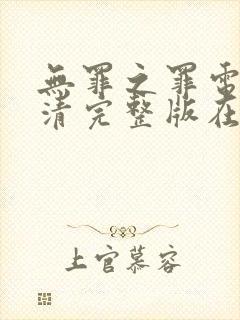 無罪之罪電
清完整版在
上官慕容